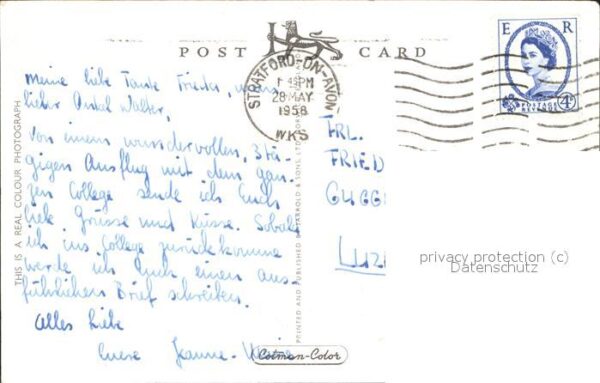 POST CARD
E R
POSTAGE
REVENUE
4D
STRATFORD-ON-AVON
PM
28 MAY
1958
WKS
Meine liebe Tante Frieda,
lieber Onkel Walter,
Von einem wundervollen, 3 tä-
gigen Ausflug mit dem gan-
zen College sende ich Euch
liebe Grüsse und Küsse. Sobald
ich ins College zurückkomme
werde ich Euch einen aus-
führlichen Brief schreiben.
Alles Liebe
Euere Jeanne-
FRL.
FRIED
GUGG
LUZ
THIS IS A REAL COLOUR PHOTOGRAPH
PRINTED AND PUBLISHED BY JARROLD & SONS, LTD.
Cotman-Color
privacy protection (c)
Datenschutz